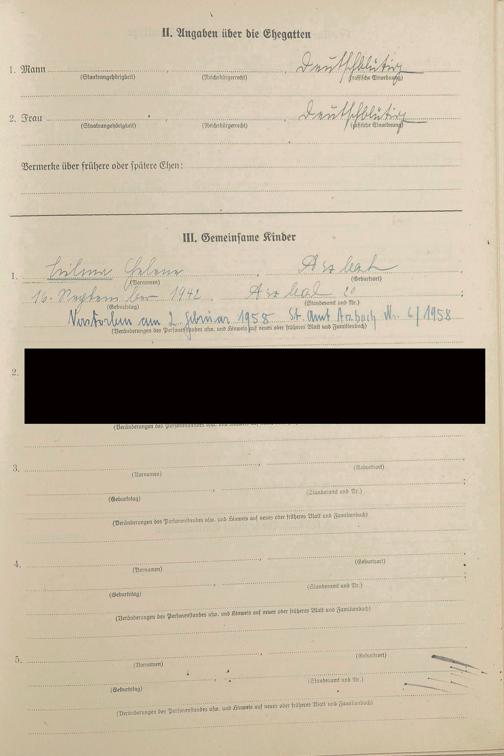 II. Angaben über die Ehegatten
1. Mann , , Deutschblütig
(Staatsangehörigkeit) (Reichsbürgerrecht) (rassische Einordnung)
2. Frau , , Deutschblütig
(Staatsangehörigkeit) (Reichsbürgerrecht) (rassische Einordnung)
Vermerke über frühere oder spätere Ehen:
III. Gemeinsame Kinder
1. Helene , Arzbach
(Vornamen) (Geburtsort)
16. September 1942, Arzbach ;
(Geburtstag) (Standesamt und Nr.)
Verstorben am 2. Februar 1958 St. Amt Arzbach Nr. 6/1958
(Veränderungen des Personenstandes usw. und Hinweis auf neues oder früheres Blatt und Familienbuch)
2.
(Veränderungen des Personenstandes usw. und Hinweis auf neues oder früheres Blatt und Familienbuch)
3. ,
(Vornamen) (Geburtsort)
(Geburtstag) (Standesamt und Nr.)
(Veränderungen des Personenstandes usw. und Hinweis auf neues oder früheres Blatt und Familienbuch)
4. ,
(Vornamen) (Geburtsort)
(Geburtstag) (Standesamt und Nr.)
(Veränderungen des Personenstandes usw. und Hinweis auf neues oder früheres Blatt und Familienbuch)
5. ,
(Vornamen) (Geburtsort)
(Geburtstag) (Standesamt und Nr.)
(Veränderungen des Personenstandes usw. und Hinweis auf neues oder früheres Blatt und Familienbuch)